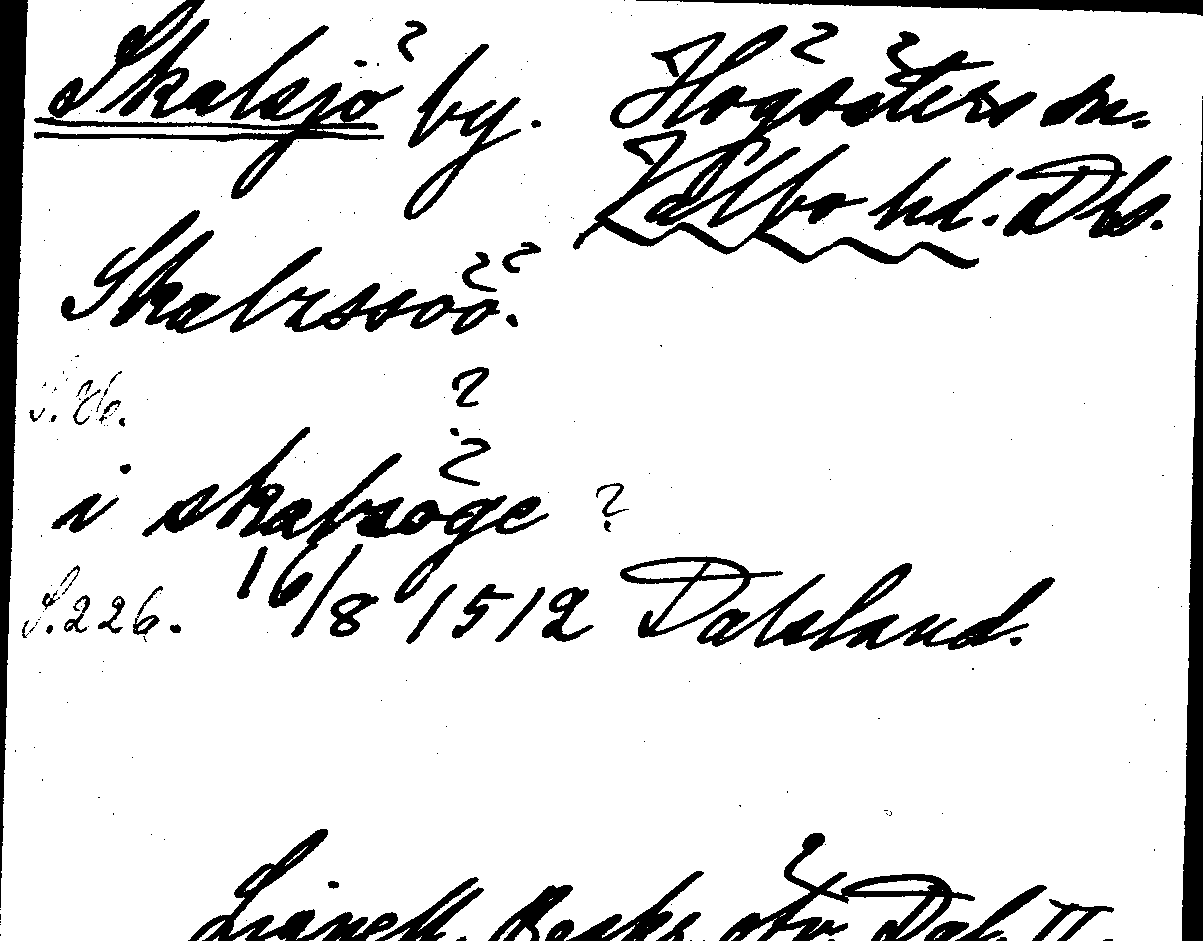 Skalsjö by. Högsäters sn.
Valbo hd. Dls.
Skalzssöö.
S. 86.
i skalsöge ?
S. 226. 16/8 1512 Dalsland.
Lignell, Beskr. öfv. Dal. II.